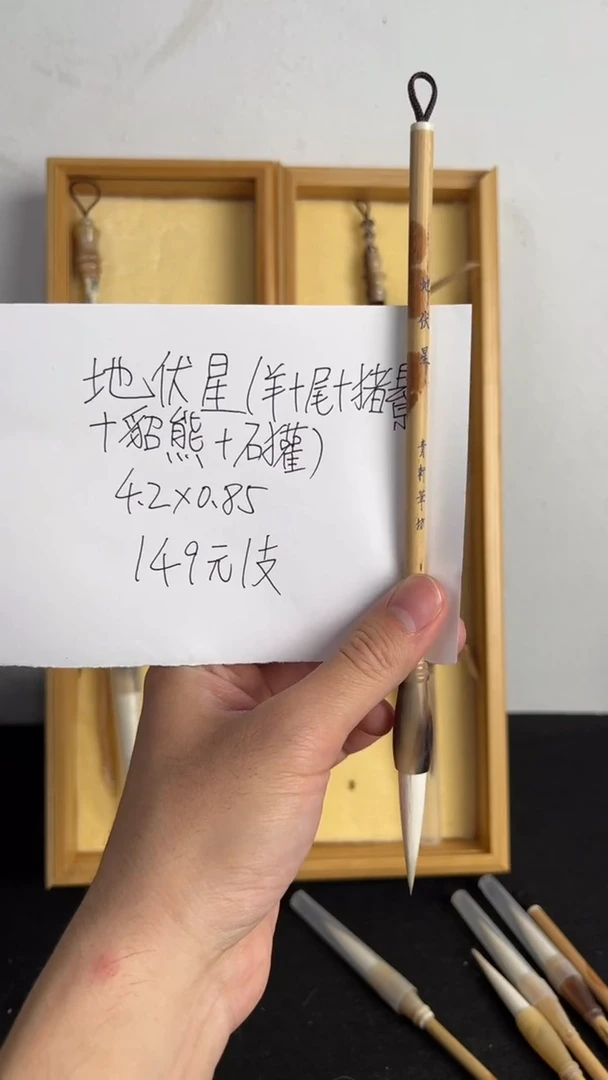 地伏星(羊+尾+猪鬃
+貂熊+石獾)
4.2×0.85
149元1支
地伏星
青軒筆坊